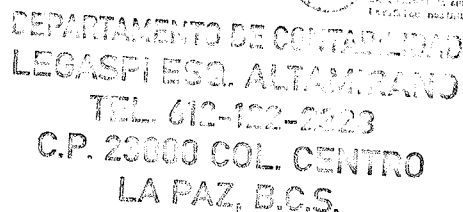 DEPARTAMENTO DE CONTABILIDAD
LEGASPI ESQ. ALTAMIRANO
TEL. 612-122-2323
C.P. 23000 COL. CENTRO
LA PAZ, B.C.S.